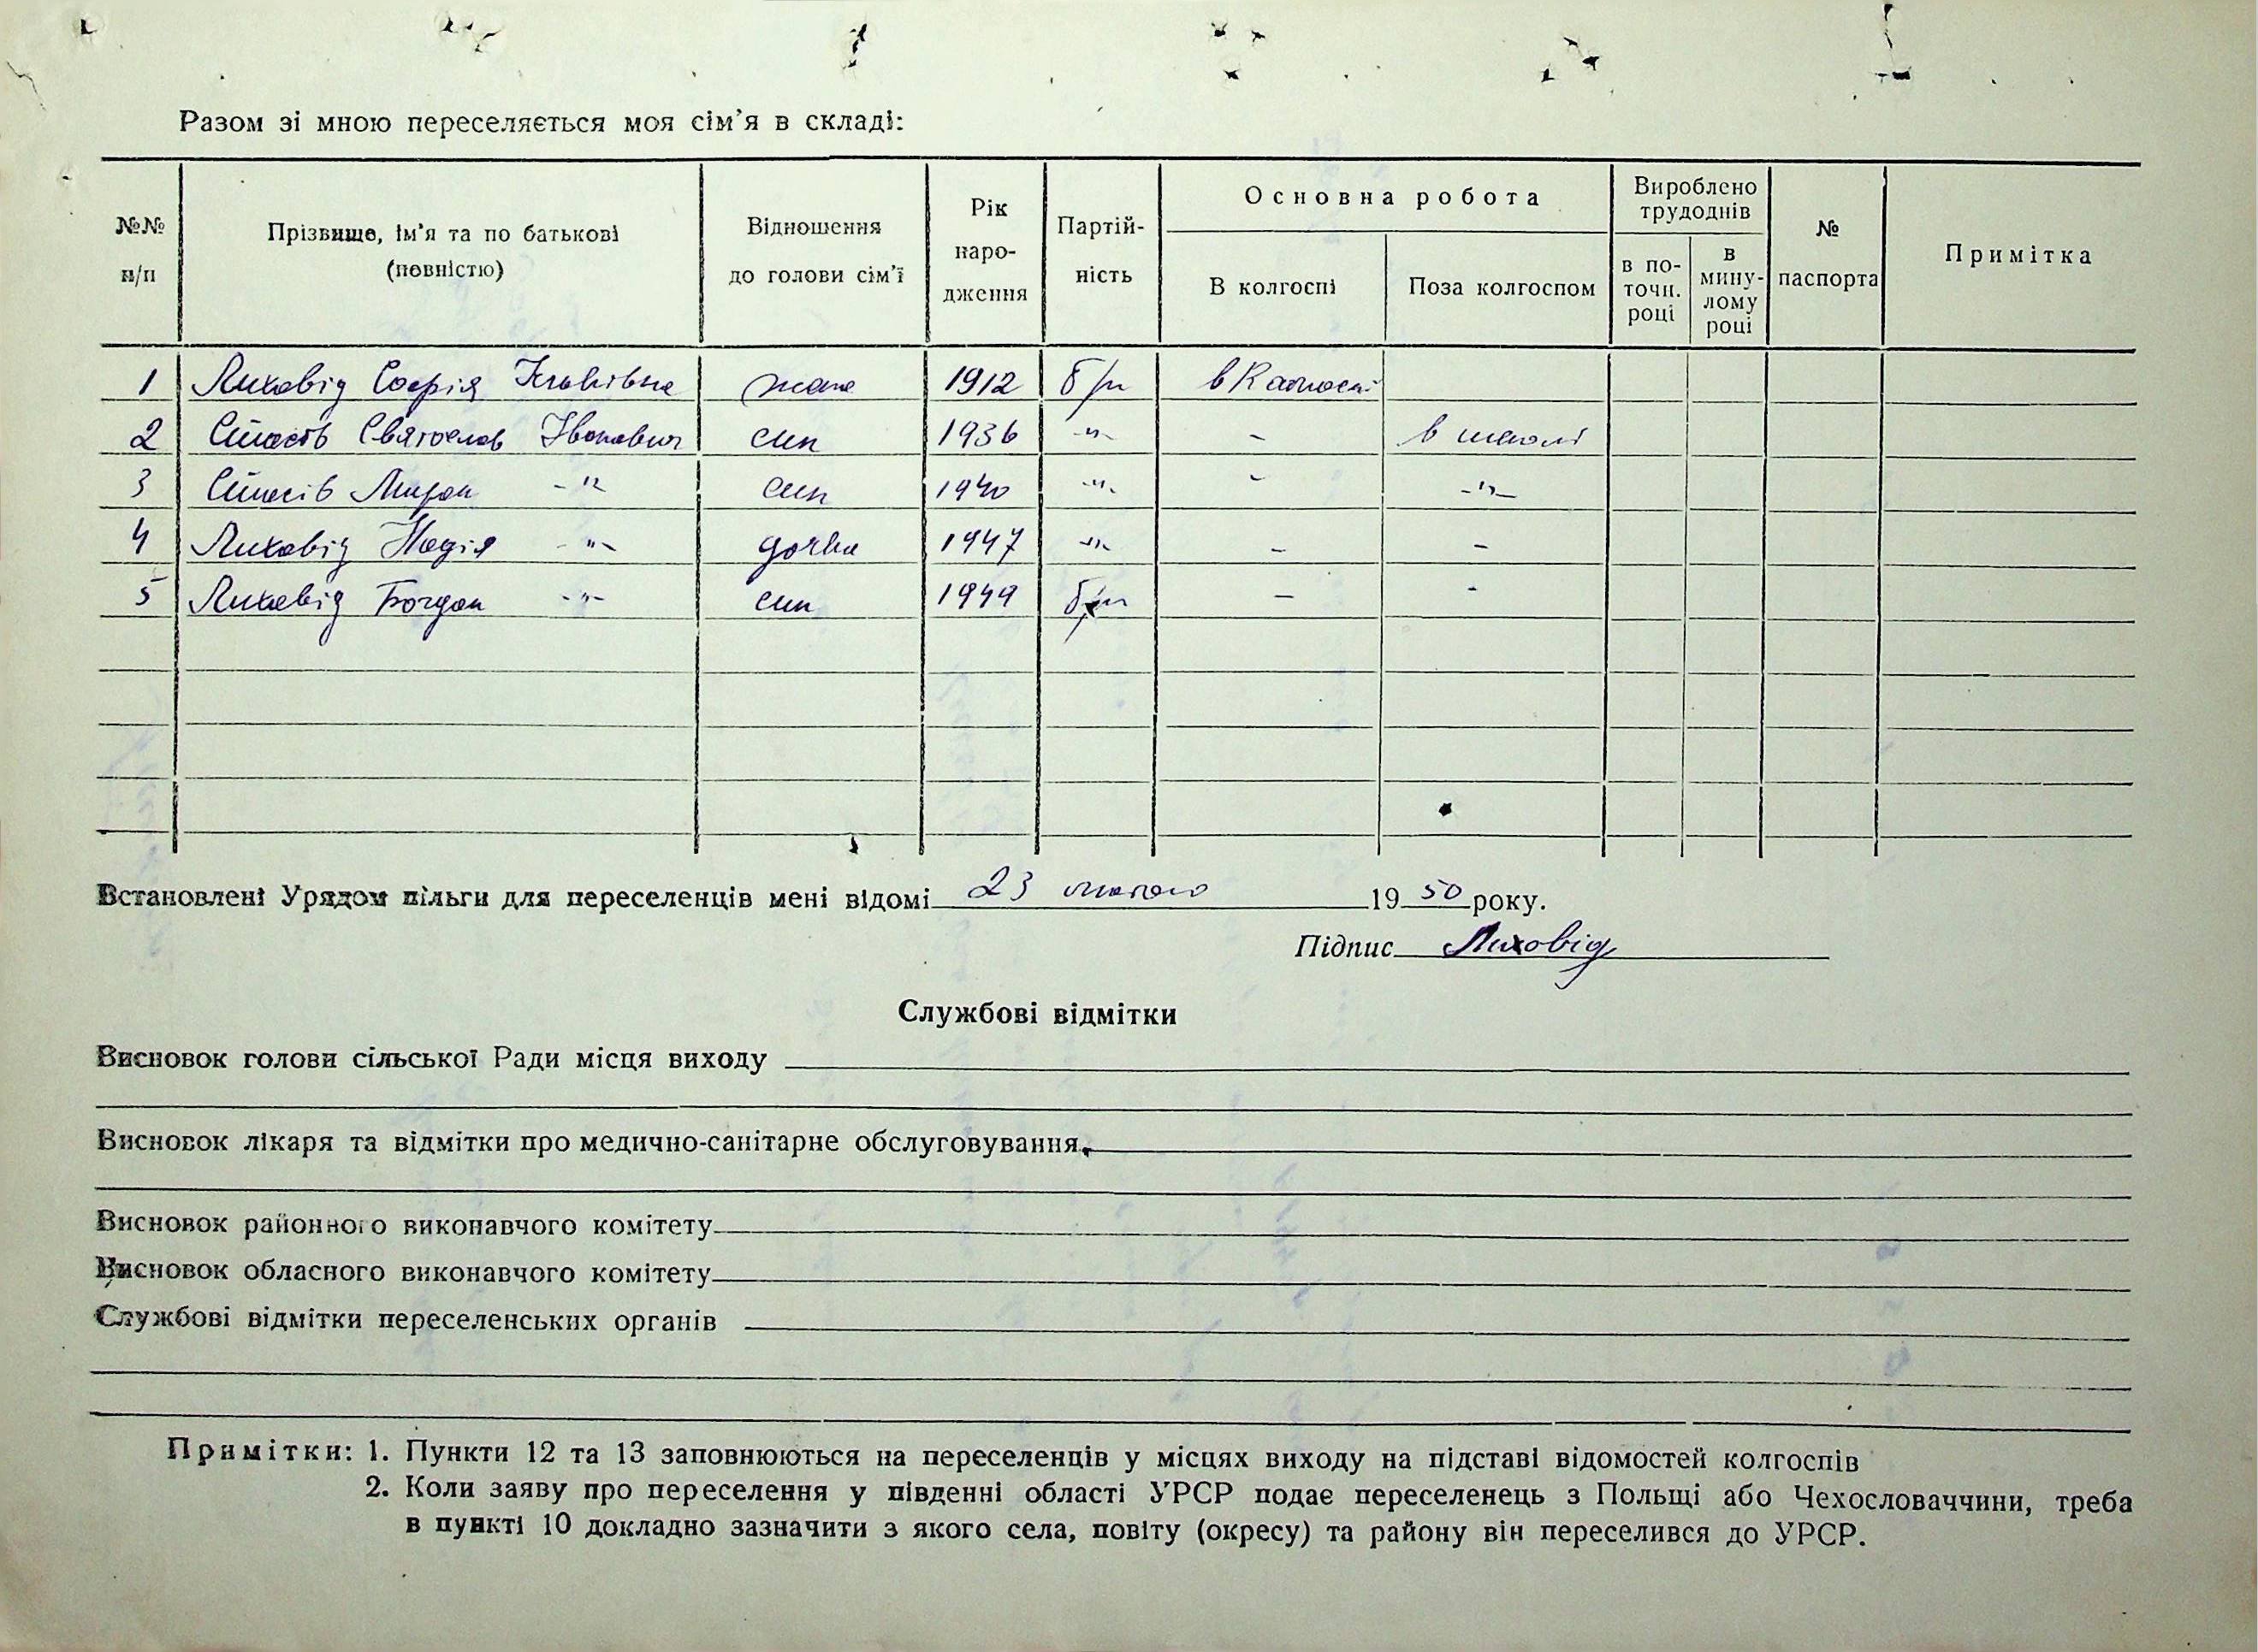 Разом зі мною переселяється моя сім'я в складі:
№№ п/п
Прізвище, ім'я та по батькові (повністю)
Відношення до голови сім'ї
Рік народження
Партійність
Основна робота
В колгоспі
Поза колгоспом
Вироблено трудоднів
в поточн. році
в минулому році
№ паспорта
Примітка
1 Лиховід Софія жона 1912 б/п в Колгоспі
2 Стасів Святослав Іванович син 1936 -"- - в школі
3 Стасів Мирон -"- син 1940 -"- - -"-
4 Лиховід Надія -"- дочка 1947 -"- - -
5 Лиховід Богдан -"- син 1949 б/п - -
Встановлені Урядом пільги для переселенців мені відомі 23 лютого 1950 року.
Підпис Лиховід
Службові відмітки
Висновок голови сільської Ради місця виходу
Висновок лікаря та відмітки про медично-санітарне обслуговування
Висновок районного виконавчого комітету
Висновок обласного виконавчого комітету
Службові відмітки переселенських органів
Примітки: 1. Пункти 12 та 13 заповнюються на переселенців у місцях виходу на підставі відомостей колгоспів
2. Коли заяву про переселення у південні області УРСР подає переселенець з Польщі або Чехословаччини, треба
в пункті 10 докладно зазначити з якого села, повіту (окресу) та району він переселився до УРСР.